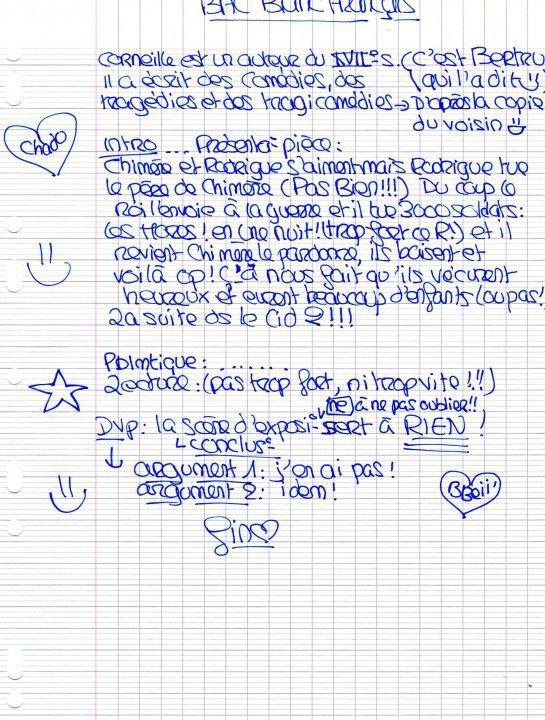 BAC BLANC FRANÇAIS
Corneille est un auteur du XVII°s. (C'est Bertru
Il a écrit des comédies, des qui l'a dit!!)
tragédies et des tragicomédies → D'après la copie
du voisin
Chado
Intro ... Présenta° pièce:
Chimène et Rodrigue s'aiment mais Rodrigue tue
le père de Chimène (Pas Bien!!!) Du coup le
Roi l'envoie à la guerre et il tue 3000 soldats:
les Mores! en une nuit! (trop fort ce R!) et il
revient Chimène le pardonne, ils baisent et
voilà op! Ç'à nous fait qu'ils vécurent
heureux et eurent beaucoup d'enfants (ou pas!
2a suite ds le Cid 2!!!
Pblmtique: ........
Lecture: (pas trop fort, ni trop vite!!)
(ne) à ne pas oublier!!
DVP: la scène d'exposi° sert à RIEN!
↳ conclus°
↳ argument 1: j'en ai pas!
argument 2: idem!
BBeii'
Fin